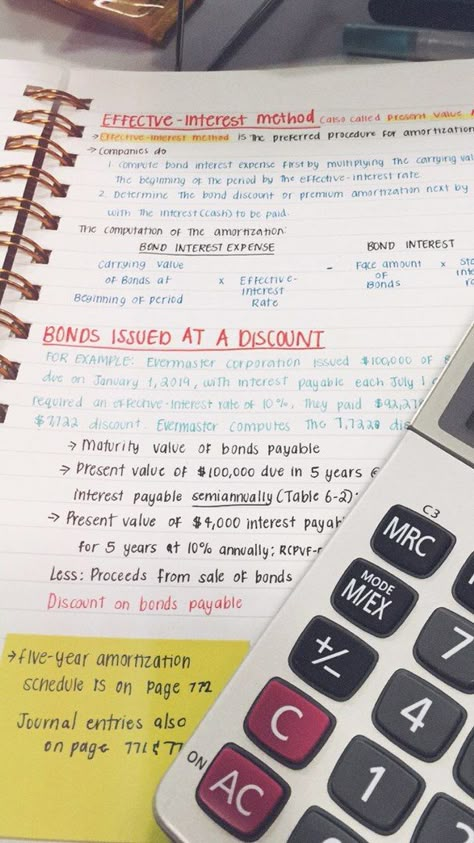 EFFECTIVE-INTEREST METHOD (also called PRESENT VALUE
→ EFFECTIVE-INTEREST METHOD is the preferred procedure for amortization
→ Companies do
1. compute bond interest expense first by multiplying the carrying val
the beginning of the period by the effective-interest rate.
2. Determine the bond discount or premium amortization next by
with the interest (cash) to be paid.
The computation of the amortization:
BOND INTEREST EXPENSE BOND INTEREST
Carrying value of Bonds at Beginning of Period x Effective-Interest Rate - Face amount of Bonds x
BONDS ISSUED AT A DISCOUNT
FOR EXAMPLE: Evermaster Corporation issued $100,000 of 8
due on January 1, 2019, with interest payable each July 1
required an effective-interest rate of 10%, they paid $92,278
$7,722 discount. Evermaster computes the 7,722 dis
→ Maturity value of bonds payable
→ Present value of $100,000 due in 5 years @
Interest payable semiannually (Table 6-2);
→ Present value of $4,000 interest payab
for 5 years at 10% annually;
Less: Proceeds from sale of bonds
Discount on bonds payable
→ five-year amortization
schedule is on page 772
Journal entries also
on page 771 & 77
C3
MRC
MODE
M/EX
+/-
7
C
4
ON
AC
1